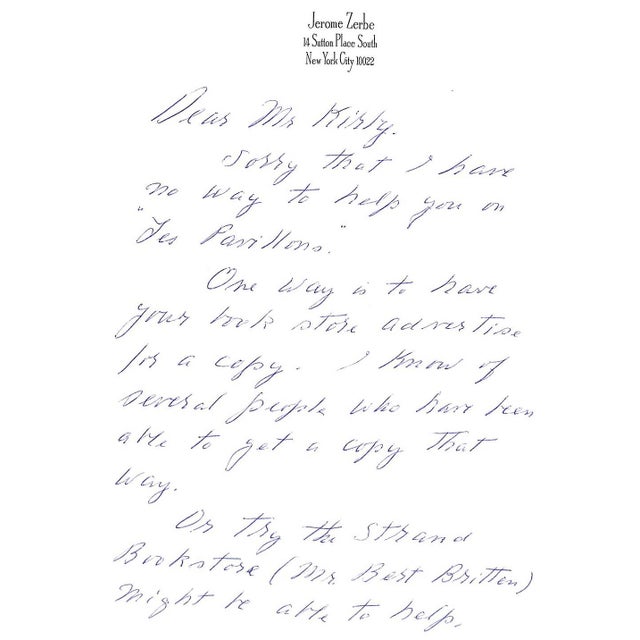 Jerome Zerbe
14 Sutton Place South
New York City 10022
Dear Mr Kirby.
Sorry that I have
no way to help you on
"Les Pavillons."
One way is to have
your book store advertise
for a copy. I know of
several people who have been
able to get a copy that
way.
Or try the Strand
Bookstore (Mr. Bert Britten)
might be able to help.